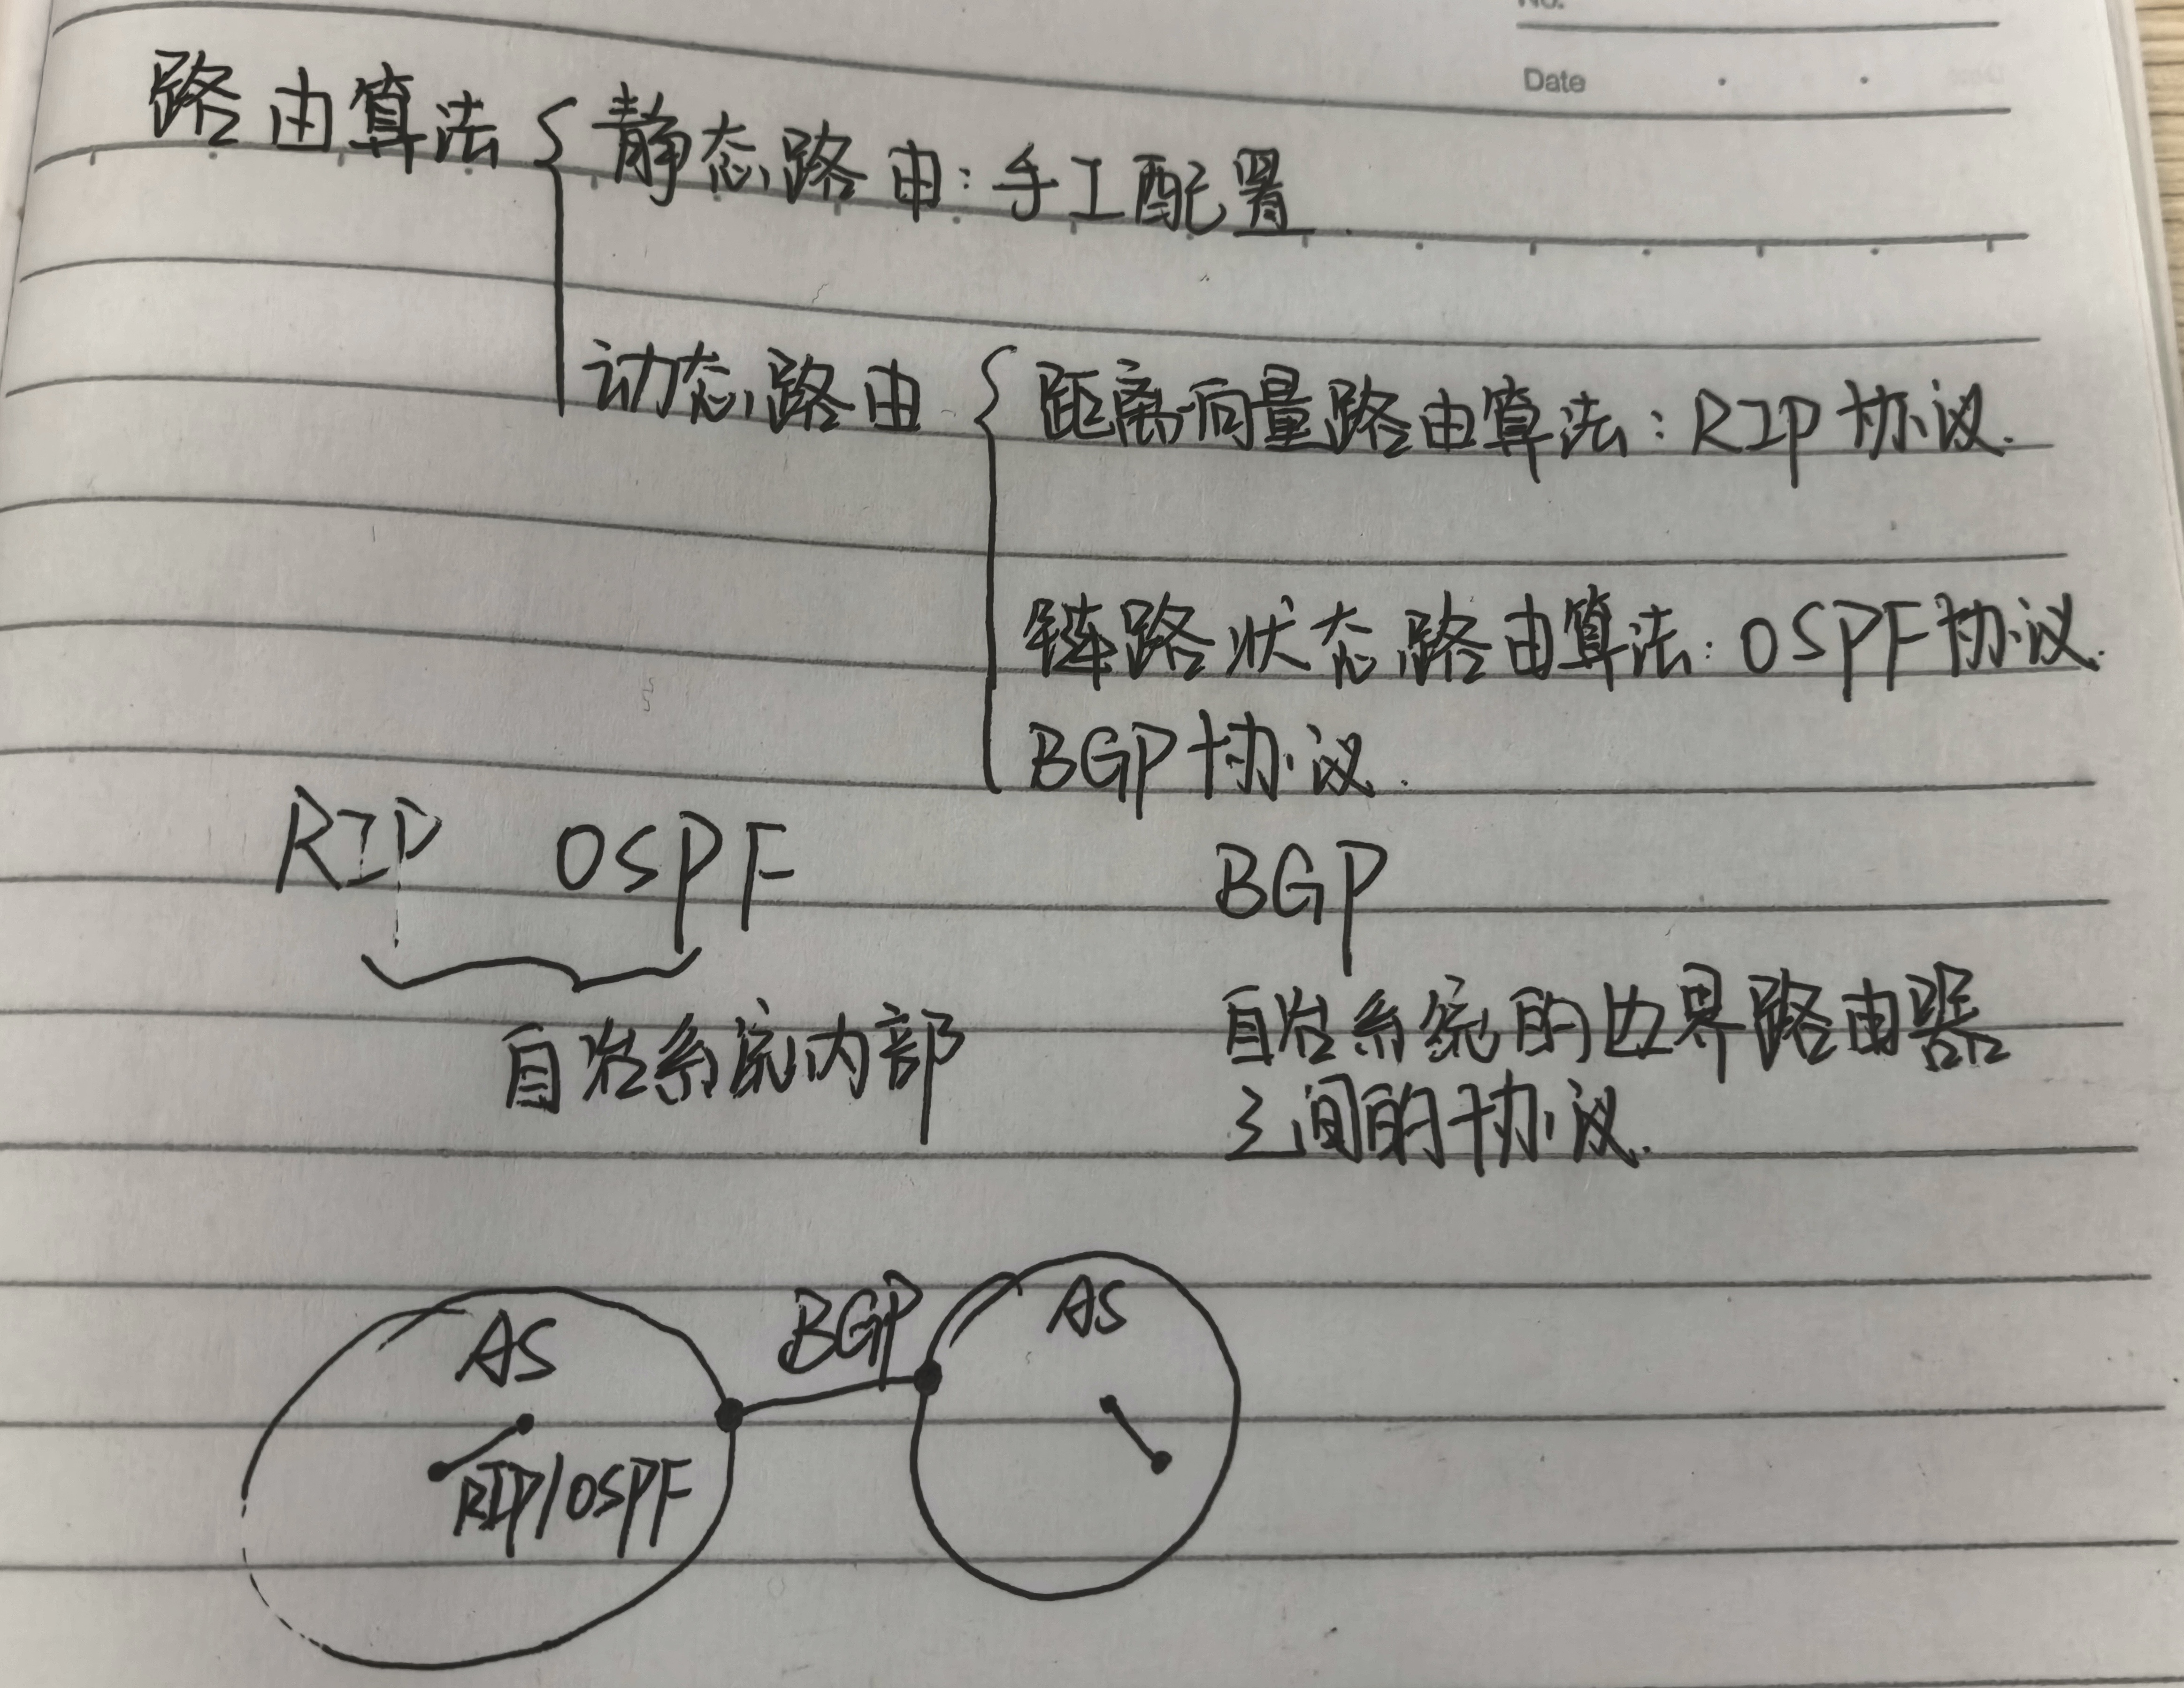 Date
路由算法 { 静态路由: 手工配置
动态路由 { 距离向量路由算法: RIP协议.
链路状态路由算法: OSPF协议.
BGP协议.
RIP OSPF BGP
自治系统内部
自治系统的边界路由器
之间的协议.
AS BGP AS
RIP/OSPF